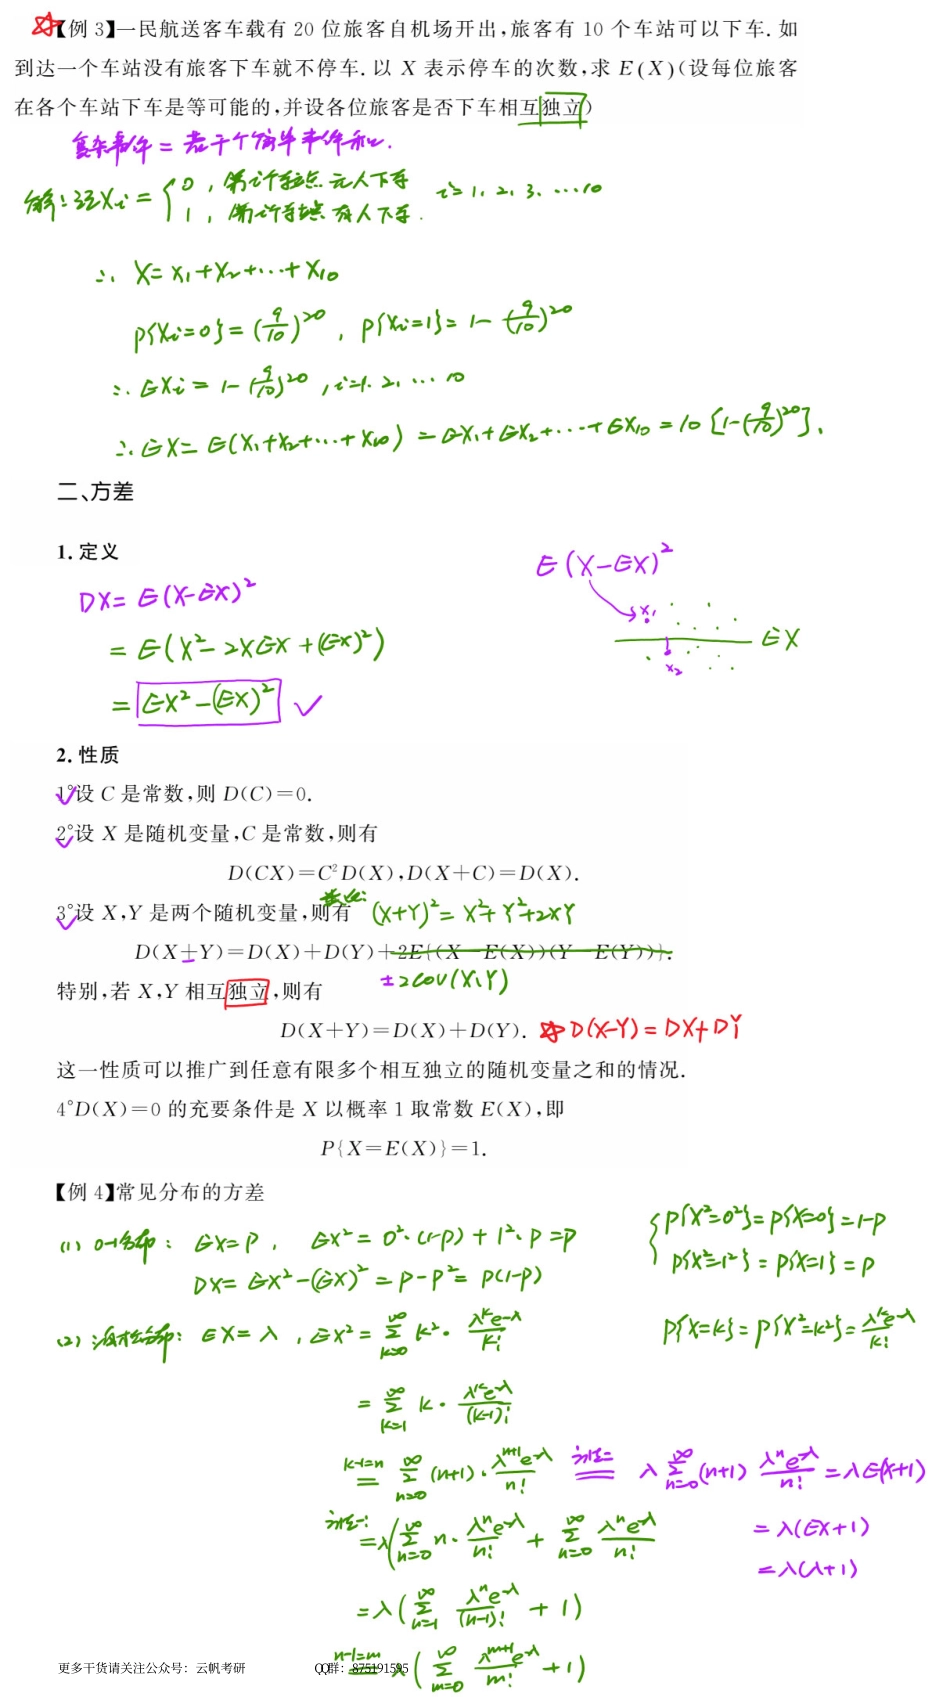 【例 3】一民航送客车载有 20 位旅客自机场开出,旅客有 10 个车站可以下车. 如
到达一个车站没有旅客下车就不停车. 以 X 表示停车的次数,求 E(X)(设每位旅客
在各个车站下车是等可能的,并设各位旅客是否下车相互独立)
复杂事件 = 若干个简单事件和.
解:设Xi = { 0, 第i个车站点 无人下车
1, 第i个车站点 有人下车. i=1. 2. 3. …10
∴ X= X1+X2+…+X10
P{Xi=0}=(9/10)^20 , P{Xi=1}= 1-(9/10)^20
∴ EXi = 1-(9/10)^20 , i=1. 2. … 10
∴ EX= E(X1+X2+…+X10) = EX1+EX2+…+EX10 = 10 [1-(9/10)^20].
二、方差
1. 定义
DX= E(X-EX)²
E(X-EX)²
= E(X²-2XEX+(EX)²)
x1
EX
x2
= EX²-(EX)²
2. 性质
1°设 C 是常数,则 D(C)=0.
2°设 X 是随机变量,C 是常数,则有
D(CX)=C²D(X),D(X+C)=D(X).
3°设 X,Y 是两个随机变量,则有 (X+Y)²= X²+Y²+2XY
D(X±Y)=D(X)+D(Y)+2E{(X-E(X))(Y-E(Y))}.
±2COV(X,Y)
特别,若 X,Y 相互独立,则有
D(X+Y)=D(X)+D(Y). D(X-Y)= DX+DY
这一性质可以推广到任意有限多个相互独立的随机变量之和的情况.
4°D(X)=0 的充要条件是 X 以概率 1 取常数 E(X),即
P{X=E(X)}=1.
【例 4】常见分布的方差
(1) 0-1分布: EX=P, EX²= 0²·(1-p)+1²·p =p
{ P{X²=0²}=P{X=0}=1-P
DX= EX²-(EX)² = p-p²= p(1-p)
P{X²=1²}= P{X=1}= P
(2) 泊松分布: EX=λ, EX²= ∑_{k=0}^{∞} k²· λ^k e^{-λ}/k!
P{X=k}=P{X²=k²}= λ^k e^{-λ}/k!
= ∑_{k=1}^{∞} k· λ^k e^{-λ}/(k-1)!
k-1=n = ∑_{n=0}^{∞} (n+1)· λ^{n+1} e^{-λ}/n! 法二 = λ ∑_{n=0}^{∞} (n+1) λ^n e^{-λ}/n! = λE(X+1)
法一: =λ( ∑_{n=0}^{∞} n· λ^n e^{-λ}/n! + ∑_{n=0}^{∞} λ^n e^{-λ}/n!
= λ(EX+1)
= λ(λ+1)
=λ( ∑_{n=1}^{∞} λ^n e^{-λ}/(n-1)! + 1)
n-1=m = λ( ∑_{m=0}^{∞} λ^{m+1} e^{-λ}/m! +1)
更多干货请关注公众号：云帆考研 QQ群：875191595